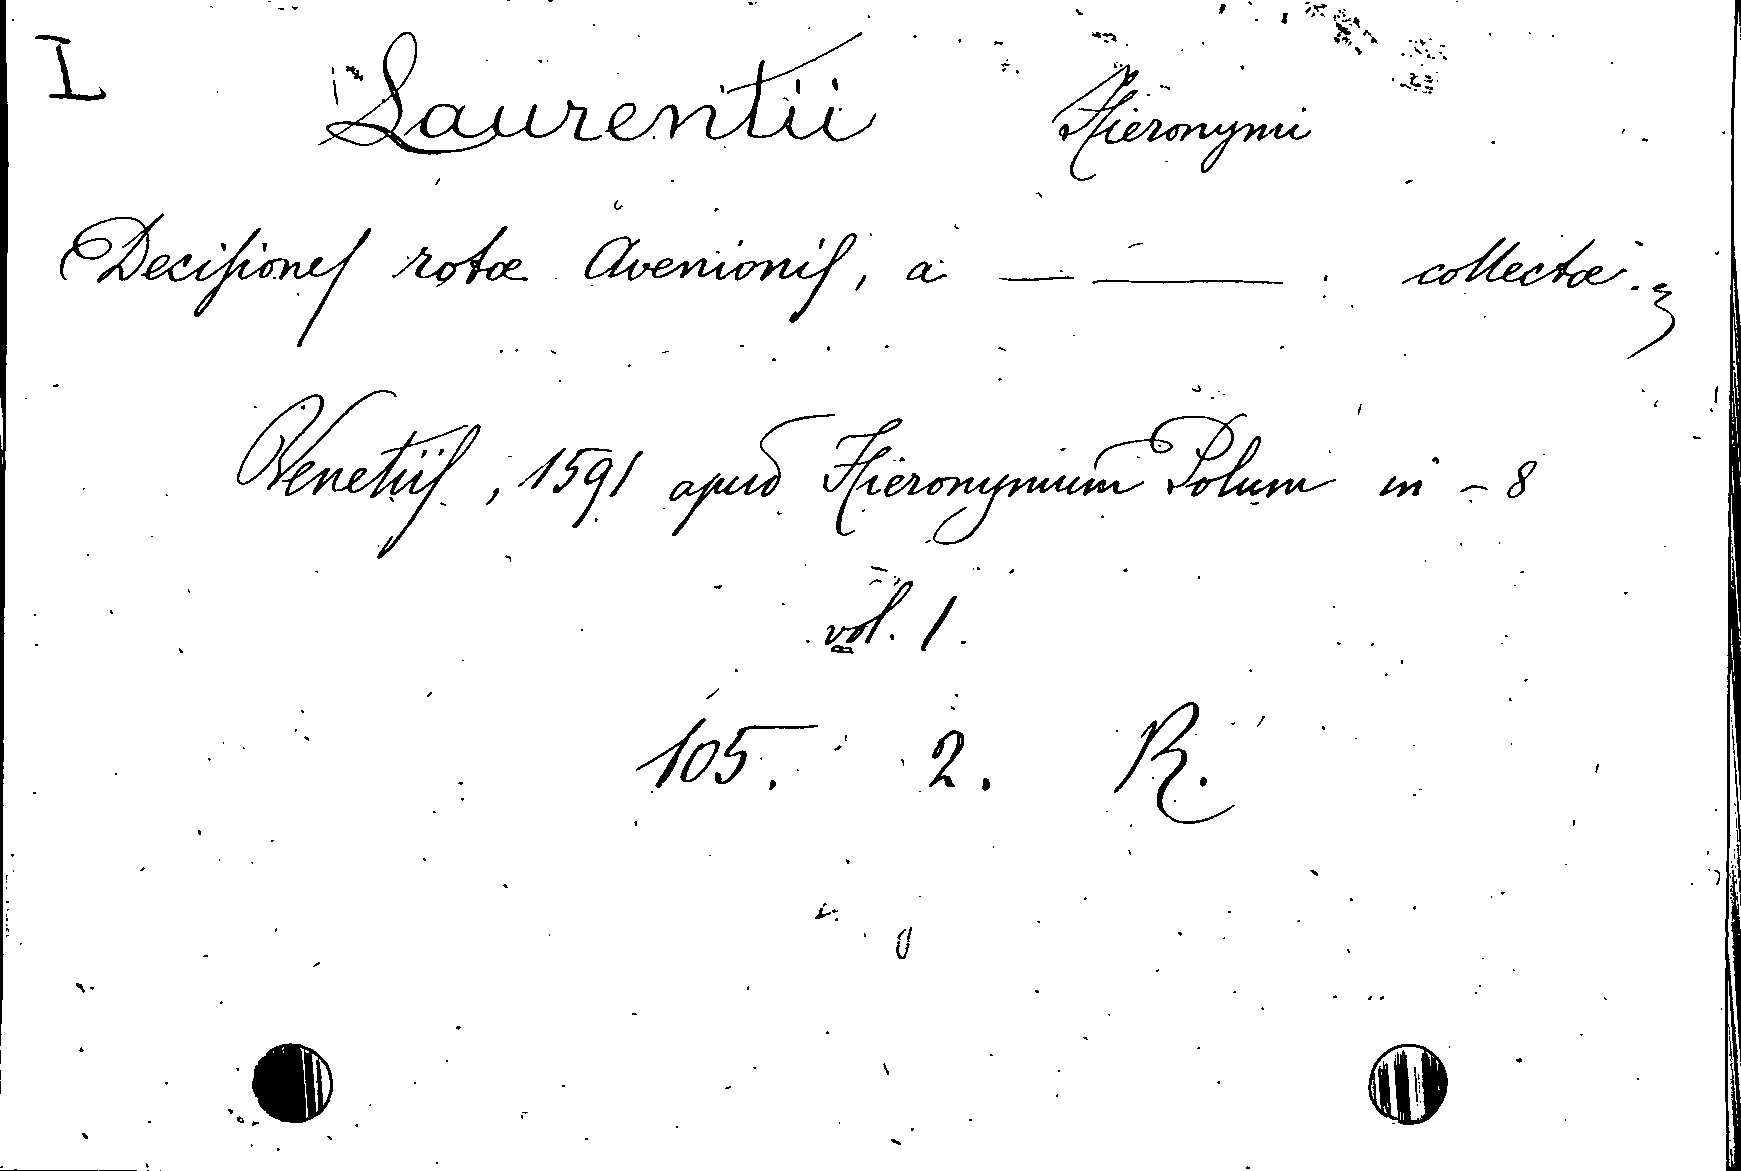 I
Laurentii Hieronymi
Decisiones rotæ Avenionis, a — —— . collectæ.
Venetiis, 1591 apud Hieronymum Polum in - 8
vol. 1.
105. 2. R.